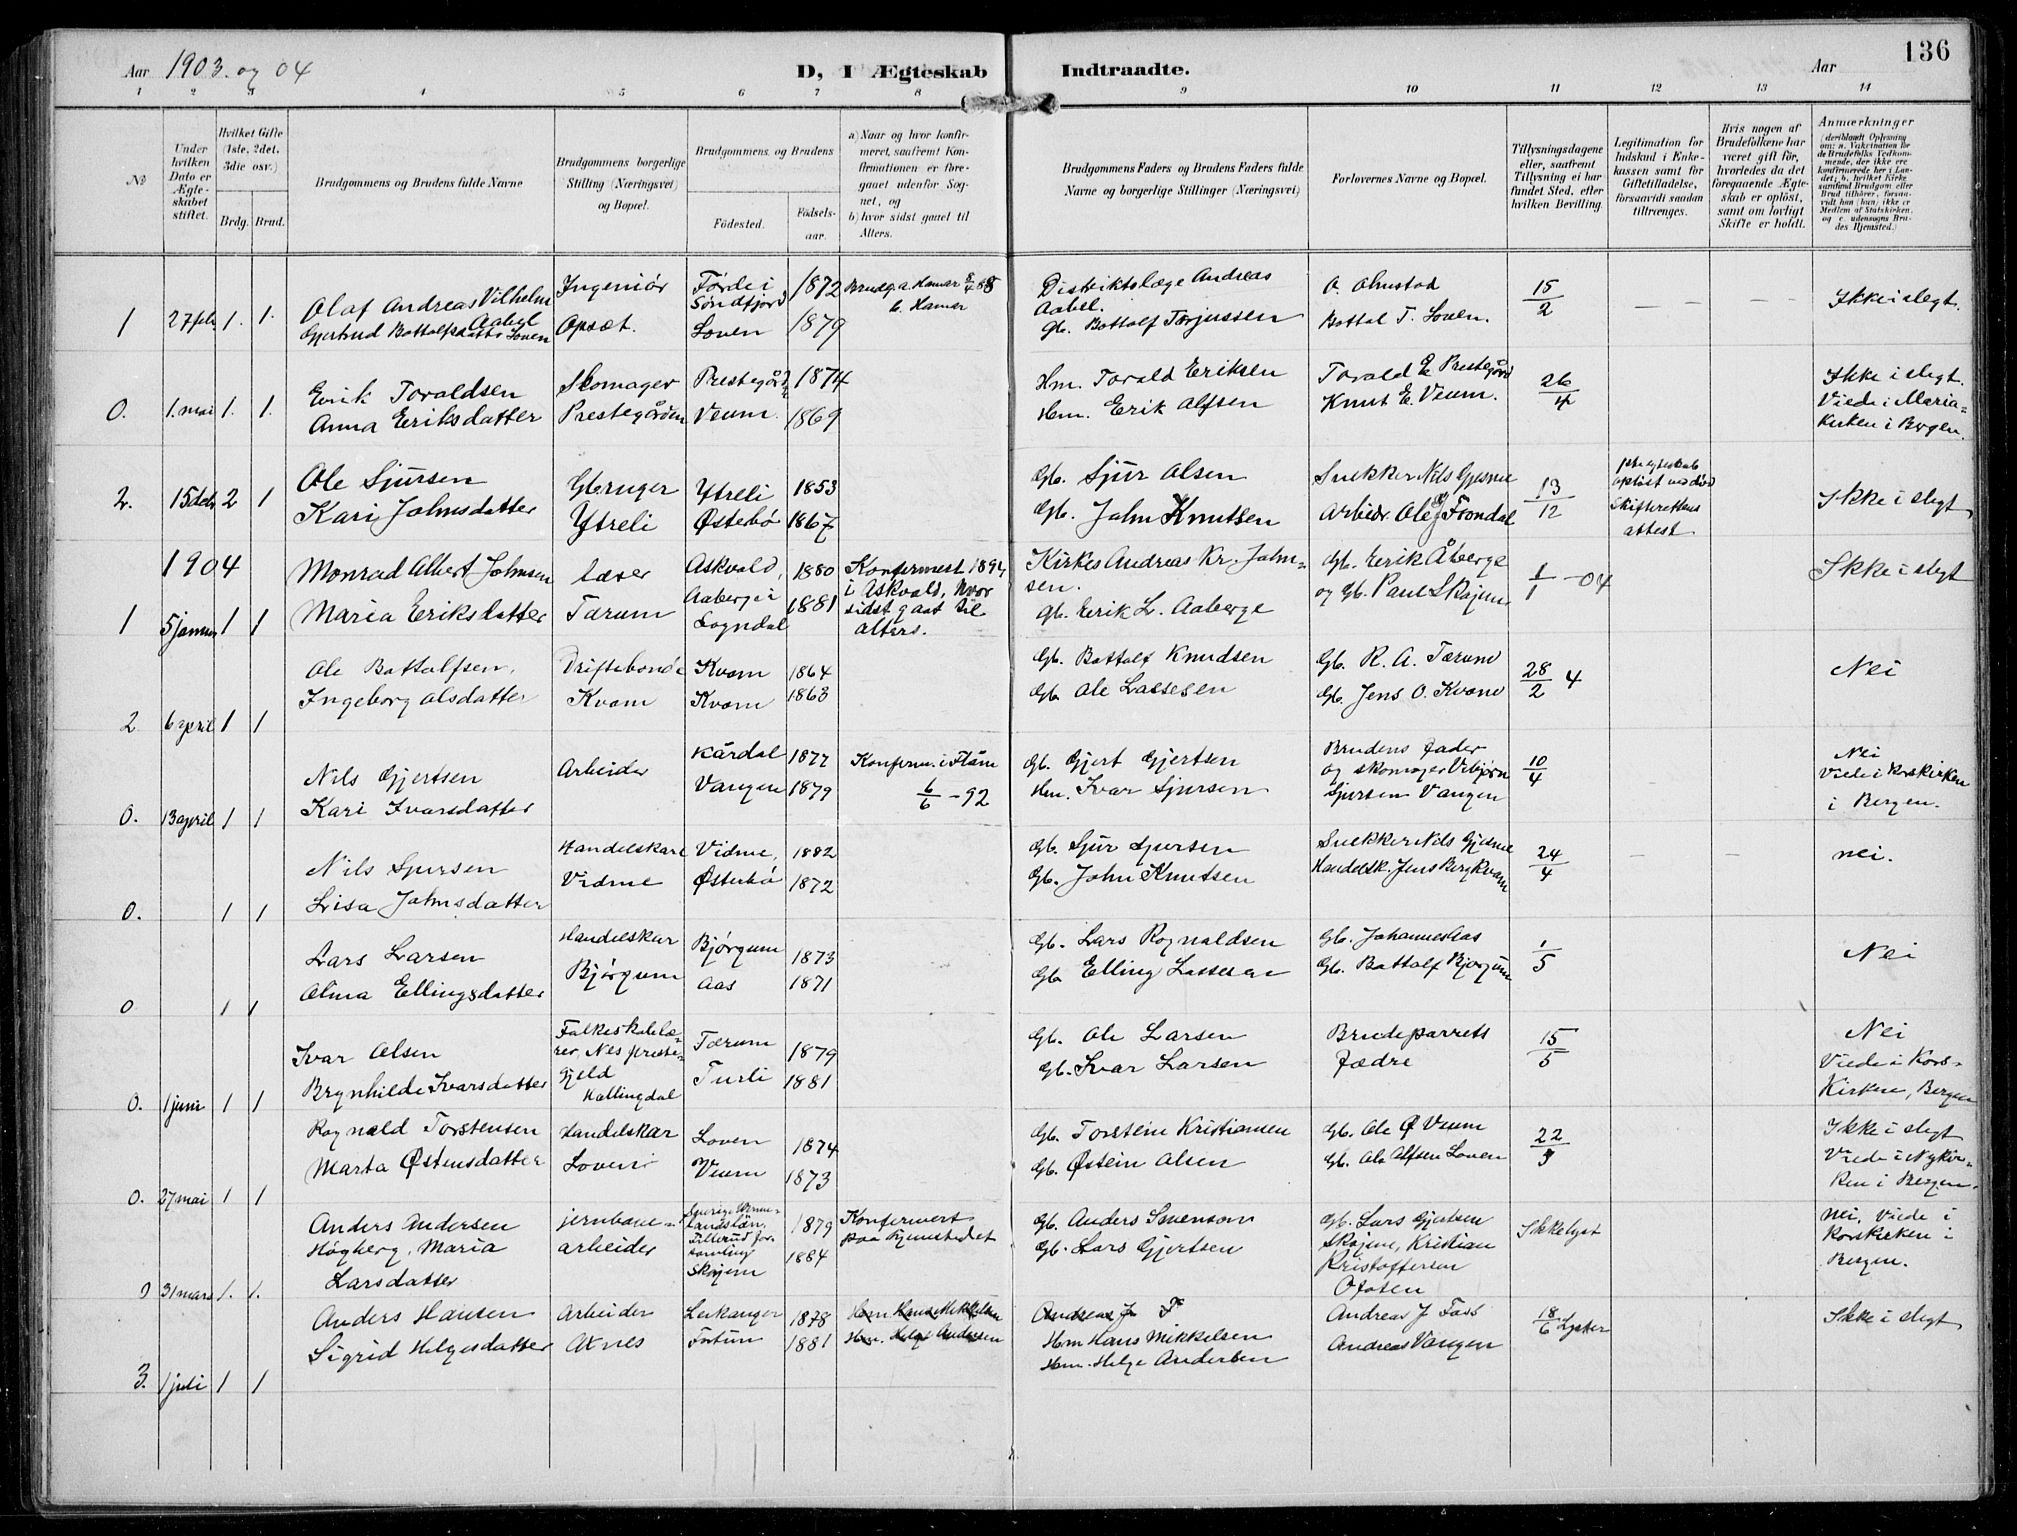 Aar 1903. og 04
D, I Ægteskab Indtraadte.
Aar
136
1 2 3 4 5 6 7 8 9 10 11 12 13 14
№
Under hvilken Dato er Ægteskabet stiftet.
Hvilket Gifte (1ste, 2det. 3die osv.)
Brdg. Brud.
Brudgommens og Brudens fulde Navne
Brudgommens borgerlige Stilling (Næringsvei) og Bopæl.
Brudgommens og Brudens
Fødested.
Fødsels-aar.
a) Naar og hvor konfirmeret, saafremt Konfirmationen er foregaaet udenfor Sognet, og
b) hvor sidst gaaet til Alters.
Brudgommens Faders og Brudens Faders fulde Navne og borgerlige Stillinger (Næringsvei)
Forlovernes Navne og Bopæl.
Tillysningsdagene eller, saafremt Tillysning ei har fundet Sted, efter hvilken Bevilling.
Legitimation for Indskud i Enkekassen samt for Giftetilladelse, forsaavidt saadan tiltrænges.
Hvis nogen af Brudefolkene har været gift før, hvorledes da det foregaaende Ægteskab er opløst, samt om lovligt Skifte er holdt.
Anmærkninger (deriblandt Oplysning om: a. Vakcination for de Brudefolks Vedkommende, der ikke ere konfirmerede her i Landet; b. hvilket Kirkesamfund Brudgom eller Brud tilhører, forsaavidt han (hun) ikke er Medlem af Statskirken, og c. udensogns Brudes Hjemsted.)
1 27 feb 1. 1. Olaf Andreas Vilhelm Aabel Ingeniør Førde i Søndfjord 1872 Brudg. a. Hamar 8/4 88 b. Hamar Distriktslæge Andreas Aabel. O. Olmstad 15/2 — — — Ikke i slegt.
Gjertrud Bottolfsdatter Loven Opset. Loven 1879 Gb. Bottolf Torjussen Bottol T. Loven.
0. 1. mai 1. 1. Eirik Toraldsen Skomager Prestegård 1874 Hm. Torald Eriksen Torald E Prestegård 26/4 Ikke i slegt.
Anna Eriksdatter Prestegården Veum. 1869 Hm. Erik Alfsen Knut E. Veum. Viede i Mariakirken i Bergen.
2. 15 deb 2 1 Ole Sjursen Gbruger Ytreli 1853 Gb. Sjur Olsen Snekker Nils Gjesme 13/12 1ste egteskab opløst ved død Skifterettens attest. Ikke i slegt
Kari Johnsdatter Ytreli Østebø 1867 Gb. John Knutsen Arbeider Ole J Frondal
1904
1 5 januar 1 1 Monrad Albert Johnsen lærer Askvold, 1880 Konfermert 1894 i Askvold, hvor sidst gaat til alters. Kirkes Andreas Kr. Johnsen. Gb. Eirik Åberge 1/1 - 04 Ikke i slegt
Maria Eriksdatter Tærum Aaberge i Sogndal 1881 Gb. Eirik L. Aaberge og Gb. Paul Skajem
2 6 april 1 1 Ole Bottolfsen, Driftebonde Kvam 1864 Gb. Bottolf Knudsen Gb. R. A. Tærum 28/2 4 Nei
Ingeborg Olsdatter Kvam Kvam 1863 Gb. Ole Lassesen Gb. Jens O. Kvam
0. 13 april 1 1 Nils Gjertsen Arbeider Kårdal 1877 Konferm. i Flåm 6/6 - 92 Gb. Gjert Gjertsen Brudens fader 10/4 Nei
Kari Ivarsdatter Vangen 1879 Hm. Ivar Sjursen og skomager Vibjørn Sjursen Vangen Viede i Korskirken i Bergen.
0. 1 1 Nils Sjursen Handelskar Vidme, 1882 Gb. Sjur Sjursen Snekker Nils Gjesme 24/4 — — nei.
Lisa Johnsdatter Vidme Østerbø 1872 Gb. John Knutsen Handelsk. Jens Berg Kvam
0 1 1 Lars Larsen Handelskar Bjørgum 1873 Gb. Lars Rognaldsen Gb. Johannes Aas 1/5 Nei
Alma Ellingsdatter Bjørgum Aas 1871 Gb. Elling Lassesen Gb. Bottolf Bjørgum
0. 1 juni 1 1 Ivar Olsen Folkeskolelærer, Nes prestegjeld Hallingdal Tærum 1879 Gb. Ole Larsen Brudeparrets fædre 15/5 Nei
Brynhilde Ivarsdatter Turli 1881 Gb. Ivar Larsen Viede i Korskirken, Bergen
0. 27 mai 1 1 Rognald Torstensen Handelskar Loven 1874 Gb. Torstein Kristiansen Gb. Ole Ø Veum 22/5 Ikke i slegt
Marta Østensdatter Loven Veum 1873 Gb. Østein Olsen Gb. Ole Alfsen Loven Viede i Nykirken i Bergen.
0 31 mars 1. 1. Anders Andersen Høgberg, Maria Larsdatter jernbanearbeider 1879 Konfermert paa hjemstedet Gb. Anders Svensson Gb. Lars Gjertsen Skajem, Kristian Kristoffersen Ofoten Ikke lyst nei, Viede i Korskirken i Bergen.
Skajem 1884 Gb. Lars Gjertsen
3. 1 juli 1 1 Anders Hansen Arbeider Leikanger 1878 Hm Hans Mikkelsen Andreas J F Andreas J Foss 18/6 Lyster Ikke i slegt
Sigrid Helgesdatter Aknes Fortun 1881 Hm. Helge Andersen Hm Hans Mikkelsen Andreas Vangen
Hm. Helge Andersen